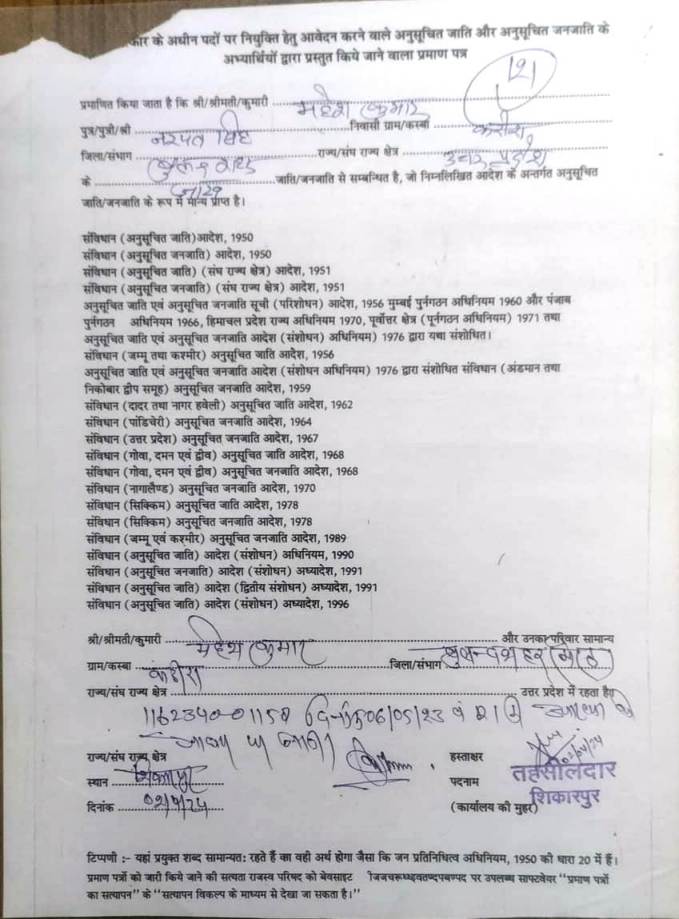 कार के अधीन पदों पर नियुक्ति हेतु आवेदन करने वाले अनुसूचित जाति और अनुसूचित जनजाति के
अभ्यार्थियों द्वारा प्रस्तुत किये जाने वाला प्रमाण पत्र
प्रमाणित किया जाता है कि श्री/श्रीमती/कुमारी महेश कुमार
पुत्र/पुत्री/श्री नरपत सिंह निवासी ग्राम/कस्बा
जिला/संभाग राज्य/संघ राज्य क्षेत्र उत्तर प्रदेश
के जाटव जाति/जनजाति से सम्बन्धित है, जो निम्नलिखित आदेश के अन्तर्गत अनुसूचित
जाति/जनजाति के रूप में मान्य प्राप्त है।
संविधान (अनुसूचित जाति)आदेश, 1950
संविधान (अनुसूचित जनजाति) आदेश, 1950
संविधान (अनुसूचित जाति) (संघ राज्य क्षेत्र) आदेश, 1951
संविधान (अनुसूचित जनजाति) (संघ राज्य क्षेत्र) आदेश, 1951
अनुसूचित जाति एवं अनुसूचित जनजाति सूची (परिशोधन) आदेश, 1956 मुम्बई पुर्नगठन अधिनियम 1960 और पंजाब
पुर्नगठन अधिनियम 1966, हिमाचल प्रदेश राज्य अधिनियम 1970, पूर्वोत्तर क्षेत्र (पूर्नगठन अधिनियम) 1971 तथा
अनुसूचित जाति एवं अनुसूचित जनजाति आदेश (संशोधन) अधिनियम) 1976 द्वारा यथा संशोधित।
संविधान (जम्मू तथा कश्मीर) अनुसूचित जाति आदेश, 1956
अनुसूचित जाति एवं अनुसूचित जनजाति आदेश (संशोधन अधिनियम) 1976 द्वारा संशोधित संविधान (अंडमान तथा
निकोबार द्वीप समूह) अनुसूचित जनजाति आदेश, 1959
संविधान (दादर तथा नागर हवेली) अनुसूचित जाति आदेश, 1962
संविधान (पांडिचेरी) अनुसूचित जनजाति आदेश, 1964
संविधान (उत्तर प्रदेश) अनुसूचित जनजाति आदेश, 1967
संविधान (गोवा, दमन एवं द्वीव) अनुसूचित जाति आदेश, 1968
संविधान (गोवा, दमन एवं द्वीव) अनुसूचित जनजाति आदेश, 1968
संविधान (नागालैण्ड) अनुसूचित जनजाति आदेश, 1970
संविधान (सिक्किम) अनुसूचित जाति आदेश, 1978
संविधान (सिक्किम) अनुसूचित जनजाति आदेश, 1978
संविधान (जम्मू एवं कश्मीर) अनुसूचित जनजाति आदेश, 1989
संविधान (अनुसूचित जाति) आदेश (संशोधन) अधिनियम, 1990
संविधान (अनुसूचित जनजाति) आदेश (संशोधन) अध्यादेश, 1991
संविधान (अनुसूचित जाति) आदेश (द्वितीय संशोधन) अध्यादेश, 1991
संविधान (अनुसूचित जाति) आदेश (संशोधन) अध्यादेश, 1996
श्री/श्रीमती/कुमारी महेश कुमार और उनका परिवार सामान्य
ग्राम/कस्बा जिला/संभाग
राज्य/संघ राज्य क्षेत्र उत्तर प्रदेश में रहता है।
राज्य/संघ राज्य क्षेत्र हस्ताक्षर
स्थान शिकारपुर पदनाम तहसीलदार
दिनांक (कार्यालय की मुहर) शिकारपुर
टिप्पणी :- यहां प्रयुक्त शब्द सामान्यत: रहते हैं का वही अर्थ होगा जैसा कि जन प्रतिनिधित्व अधिनियम, 1950 की धारा 20 में हैं।
प्रमाण पत्रों को जारी किये जाने की सत्यता राजस्व परिषद की बेवसाइट पर उपलब्ध साफ्टवेयर "प्रमाण पत्रों
का सत्यापन" के "सत्यापन विकल्प के माध्यम से देखा जा सकता है।"